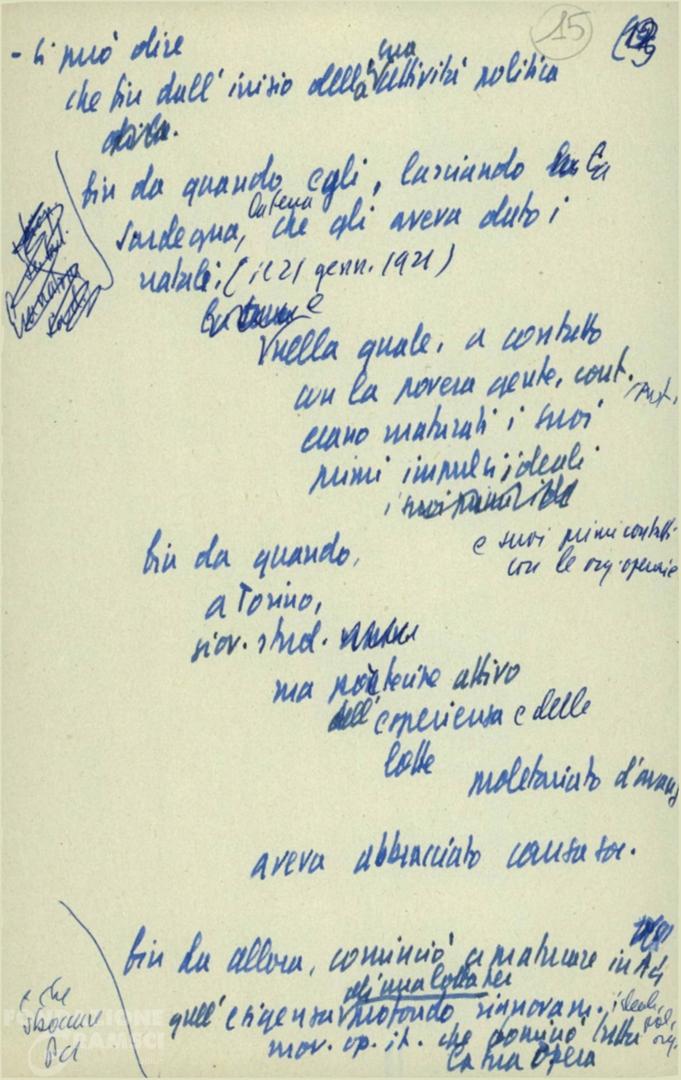 15
- Si può dire
sua
che fin dall'inizio della attività politica
fin da quando egli, lasciando la
la terra
Sardegna, che gli aveva dato i
natali: (il 21 genn. 1921)
e
nella quale, a contatto
con la povera gente, cont.
erano maturati i suoi
primi impulsi ideali
i suoi primi ideal
e suoi primi contatti
con le org. operaie
fin da quando,
a Torino,
giov. stud.
ma partecipe attivo
dell'esperienza e delle
lotte
proletariato d'avang
aveva abbracciato causa soc.
fin da allora, cominciò a maturare in
di una lotta per
quell'esigenza profondo rinnovam. ideali,
pol.
org.
mov. op. it. che dominò tutta
la sua opera
e che
sboccare
PCI
FONDAZIONE
GRAMSCI